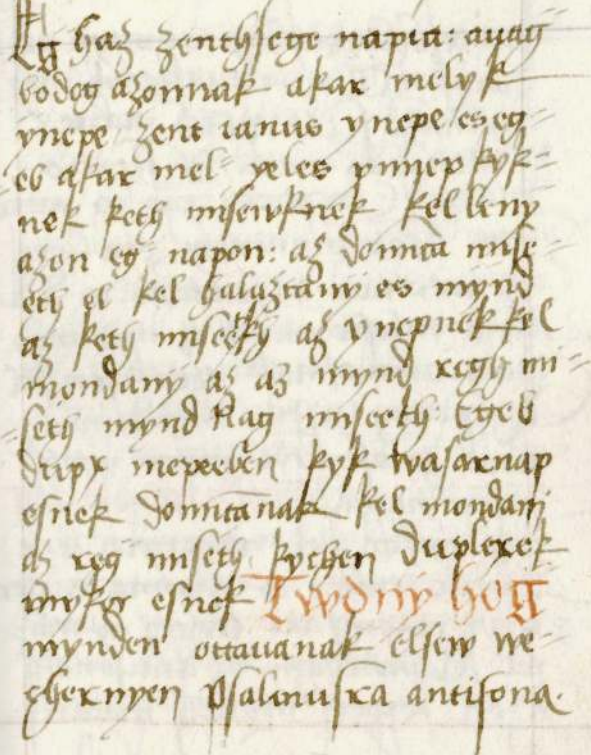 Eg haz zenthsege napia: auag
bodog azonnak akar melyk
ynepe zent ianus ynepe es eg=
eb akar mel yeles ynnep kyk=
nek keth misewknek kel leny
azon eg napon: az domica mise=
eth el kel halaztany es mynd
az keth miseeth az ynepnek kel
mondany az az mynd regh mi=
=seth mynd Nag miseeth: Egeb
dupx inepeeben kyk wasarnap
esnek domicanak kel mondani
az reg miseth kychen duplexek
esnek Twdny hog
mynden ottauanak elsew we=
chernyen psalmusra antifona.